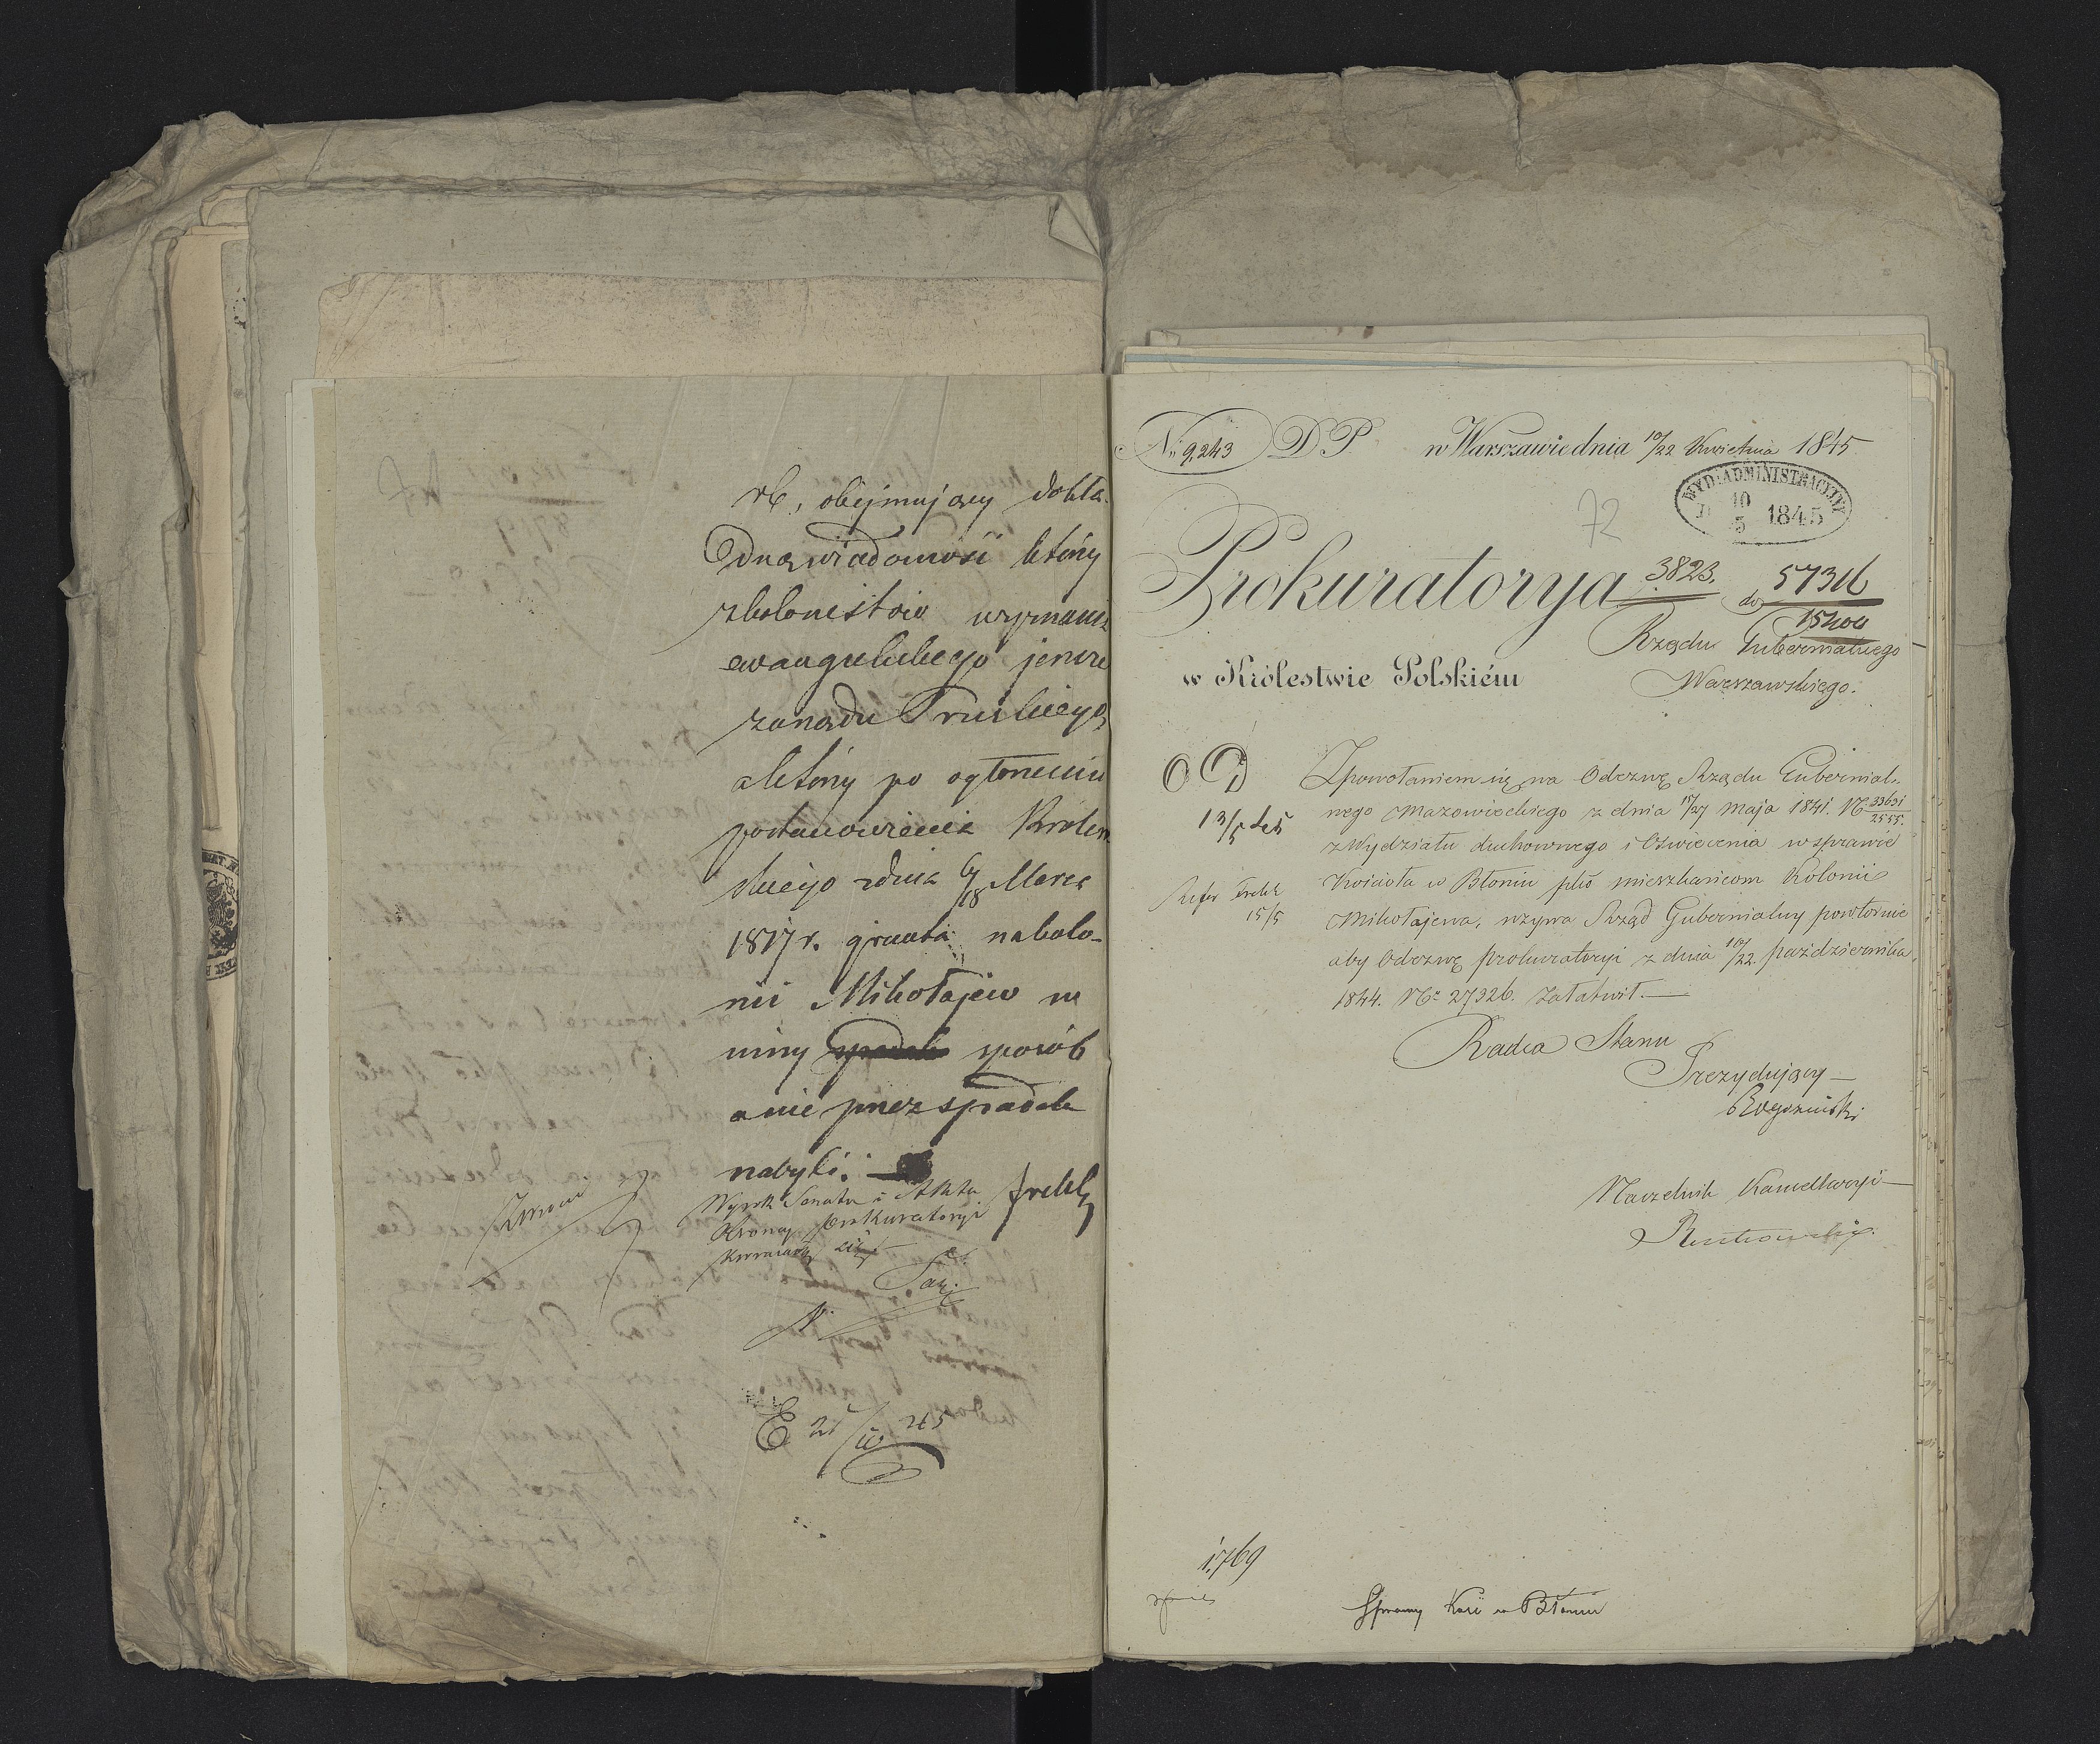 rb, obejmujący dokła-
dną wiadomość który
z kolonistów wyznania
ewangelickiego jeszcze
za rządu Pruskiego,
a który po ogłoszeniu
postanowienia Królew-
skiego z dnia 6/18 Marca
1817 r. grunta na kolo-
nii Mikołajew w
inny sposób
a nie przez spadek
nabyli.
Wyrok Senatu i Akta
stroną prokuratoryi
E 21/10 45
No 9,243 D.P. w Warszawie dnia 10/22 Kwietnia 1845
WYD: ADMINISTRACYJNY
D 10/5 1845
72
Prokuratorya
3823.
do 57316
15400
Rządu Gubernialnego
Warszawskiego.
w Królestwie Polskiém
O D
13/5 45
Z powołaniem się na Odezwę Rządu Gubernial-
nego Mazowieckiego z dnia 15/27 Maja 1841. No 33631/2555.
z Wydziału duchownego i Oświecenia w sprawie
Kościoła w Błoniu ptko mieszkańcom Kolonii
Mikołajewa, wzywa Rząd Gubernialny powtórnie
aby Odezwę prokuratoryi z dnia 10/22. października
1844. No 27326. załatwił.
15/5
Radca Stanu
Prezydujący
Naczelnik Kancellaryi
1,769
Sprawy Koś w Błoniu